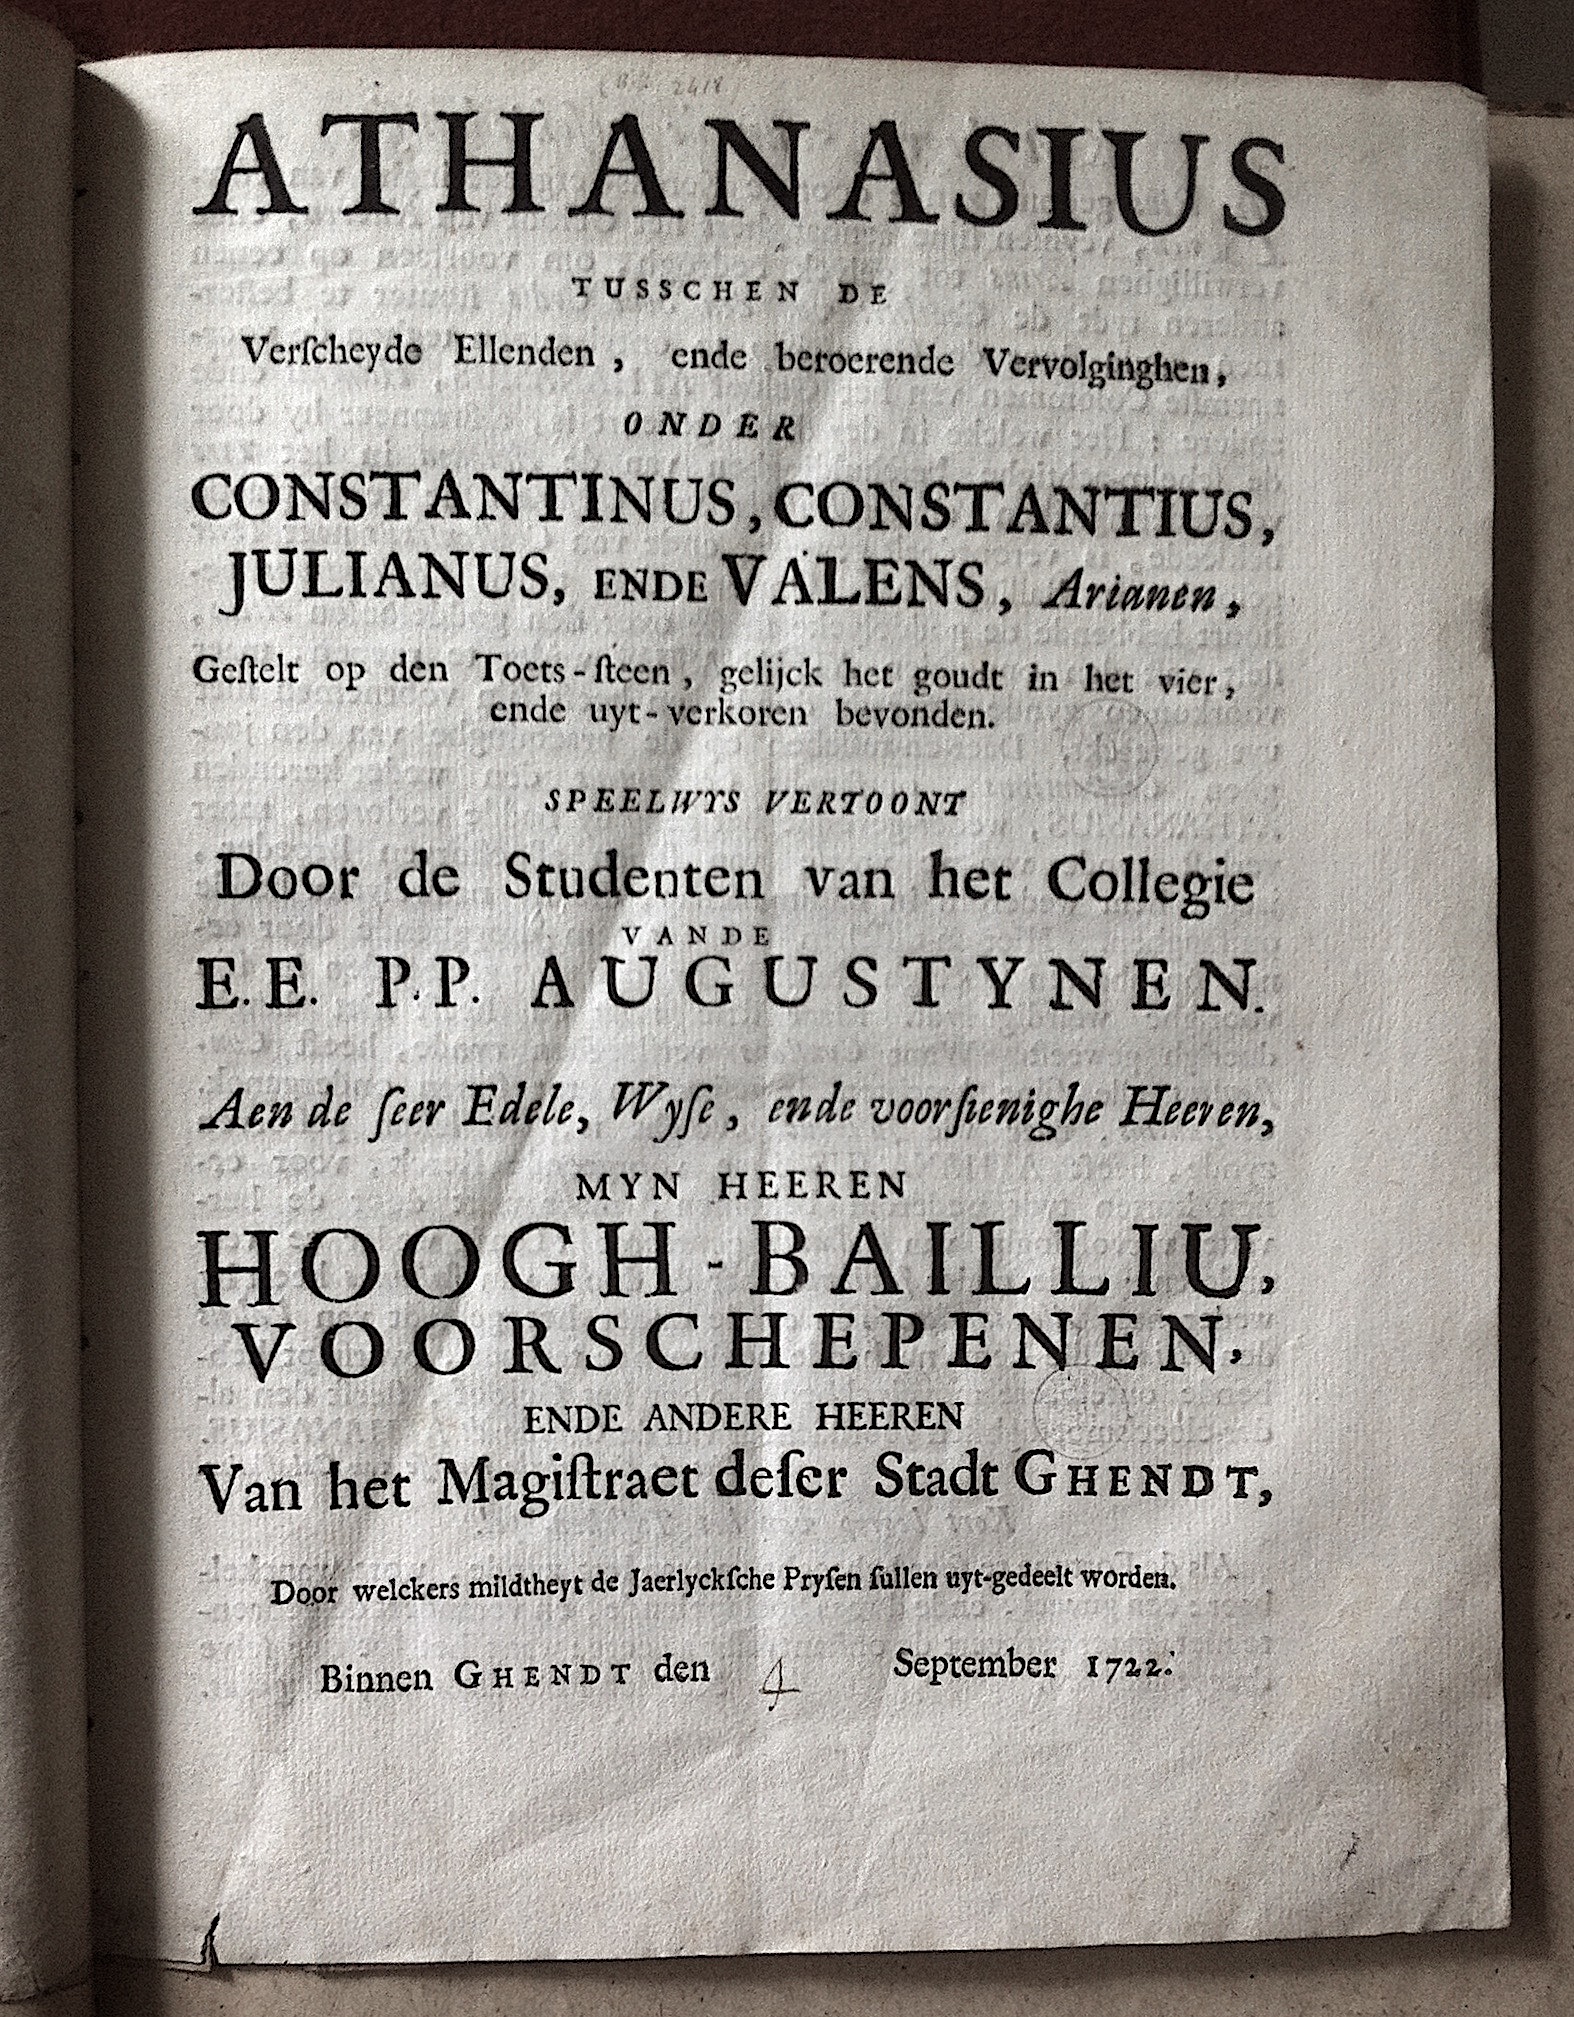 ATHANASIUS
TUSSCHEN DE
Verſcheyde Ellenden, ende beroerende Vervolginghen,
ONDER
CONSTANTINUS, CONSTANTIUS,
JULIANUS, ENDE VALENS, Arianen,
Geſtelt op den Toets-ſteen, gelijck het goudt in het vier,
ende uyt-verkoren bevonden.
SPEELWYS VERTOONT
Door de Studenten van het Collegie
VANDE
E.E. P.P. AUGUSTYNEN.
Aen de ſeer Edele, Wyſe, ende voorſienighe Heeren,
MYN HEEREN
HOOGH-BAILLIU,
VOORSCHEPENEN,
ENDE ANDERE HEEREN
Van het Magiſtraet deſer Stadt GHENDT,
Door welckers mildtheyt de Jaerlyckſche Pryſen ſullen uyt-gedeelt worden.
Binnen GHENDT den 4 September 1722.